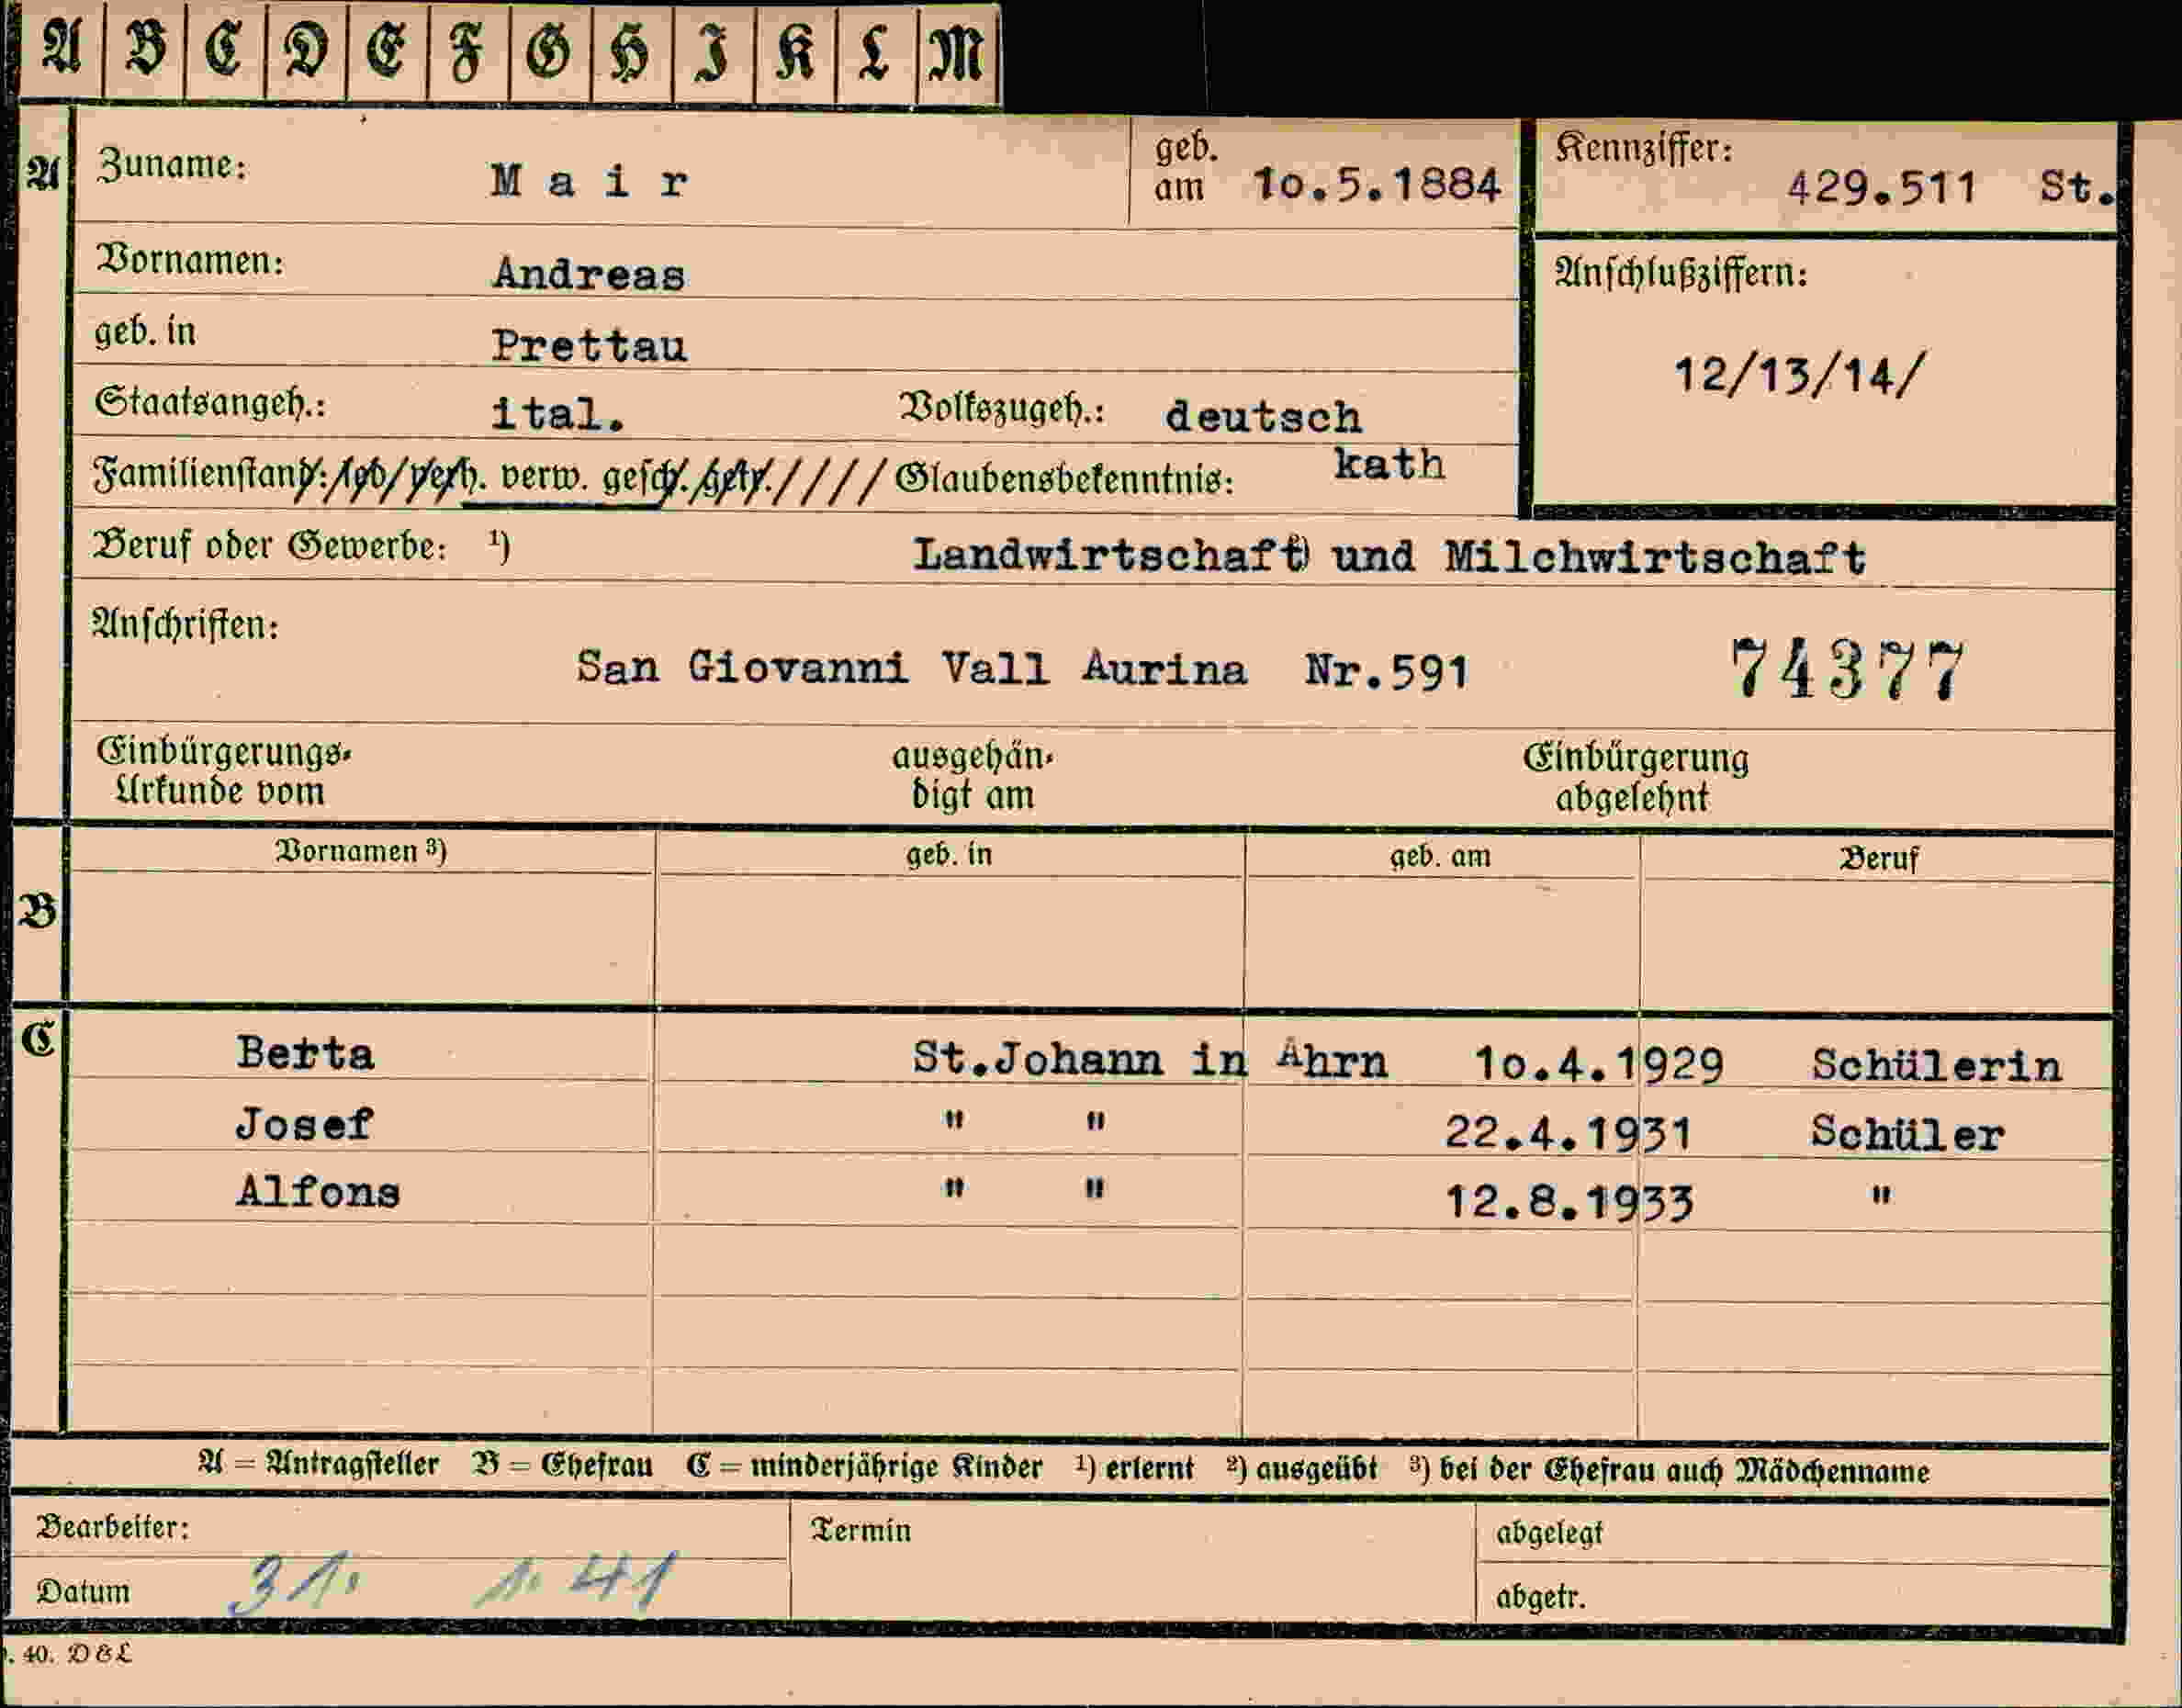 A B C D E F G H I K L M
A Zuname: Mair geb. am 1o.5.1884 Kennziffer: 429.511 St.
Vornamen: Andreas Anschlußziffern:
geb. in Prettau 12/13/14/
Staatsangeh.: ital. Volkszugeh.: deutsch
Familienstand: led. verh. verw. gesch. getr. //// Glaubensbekenntnis: kath
Beruf oder Gewerbe: ¹) Landwirtschaft) und Milchwirtschaft
Anschriften:
San Giovanni Vall Aurina Nr.591 74377
Einbürgerungs- ausgehän- Einbürgerung
Urkunde vom digt am abgelehnt
Vornamen ³) geb. in geb. am Beruf
B
C Berta St.Johann in Ahrn 1o.4.1929 Schülerin
Josef " " 22.4.1931 Schüler
Alfons " " 12.8.1933 "
A = Antragsteller B = Ehefrau C = minderjährige Kinder ¹) erlernt ²) ausgeübt ³) bei der Ehefrau auch Mädchenname
Bearbeiter: Termin abgelegt
Datum 31. 1. 41 abgetr.
. 40. D&L